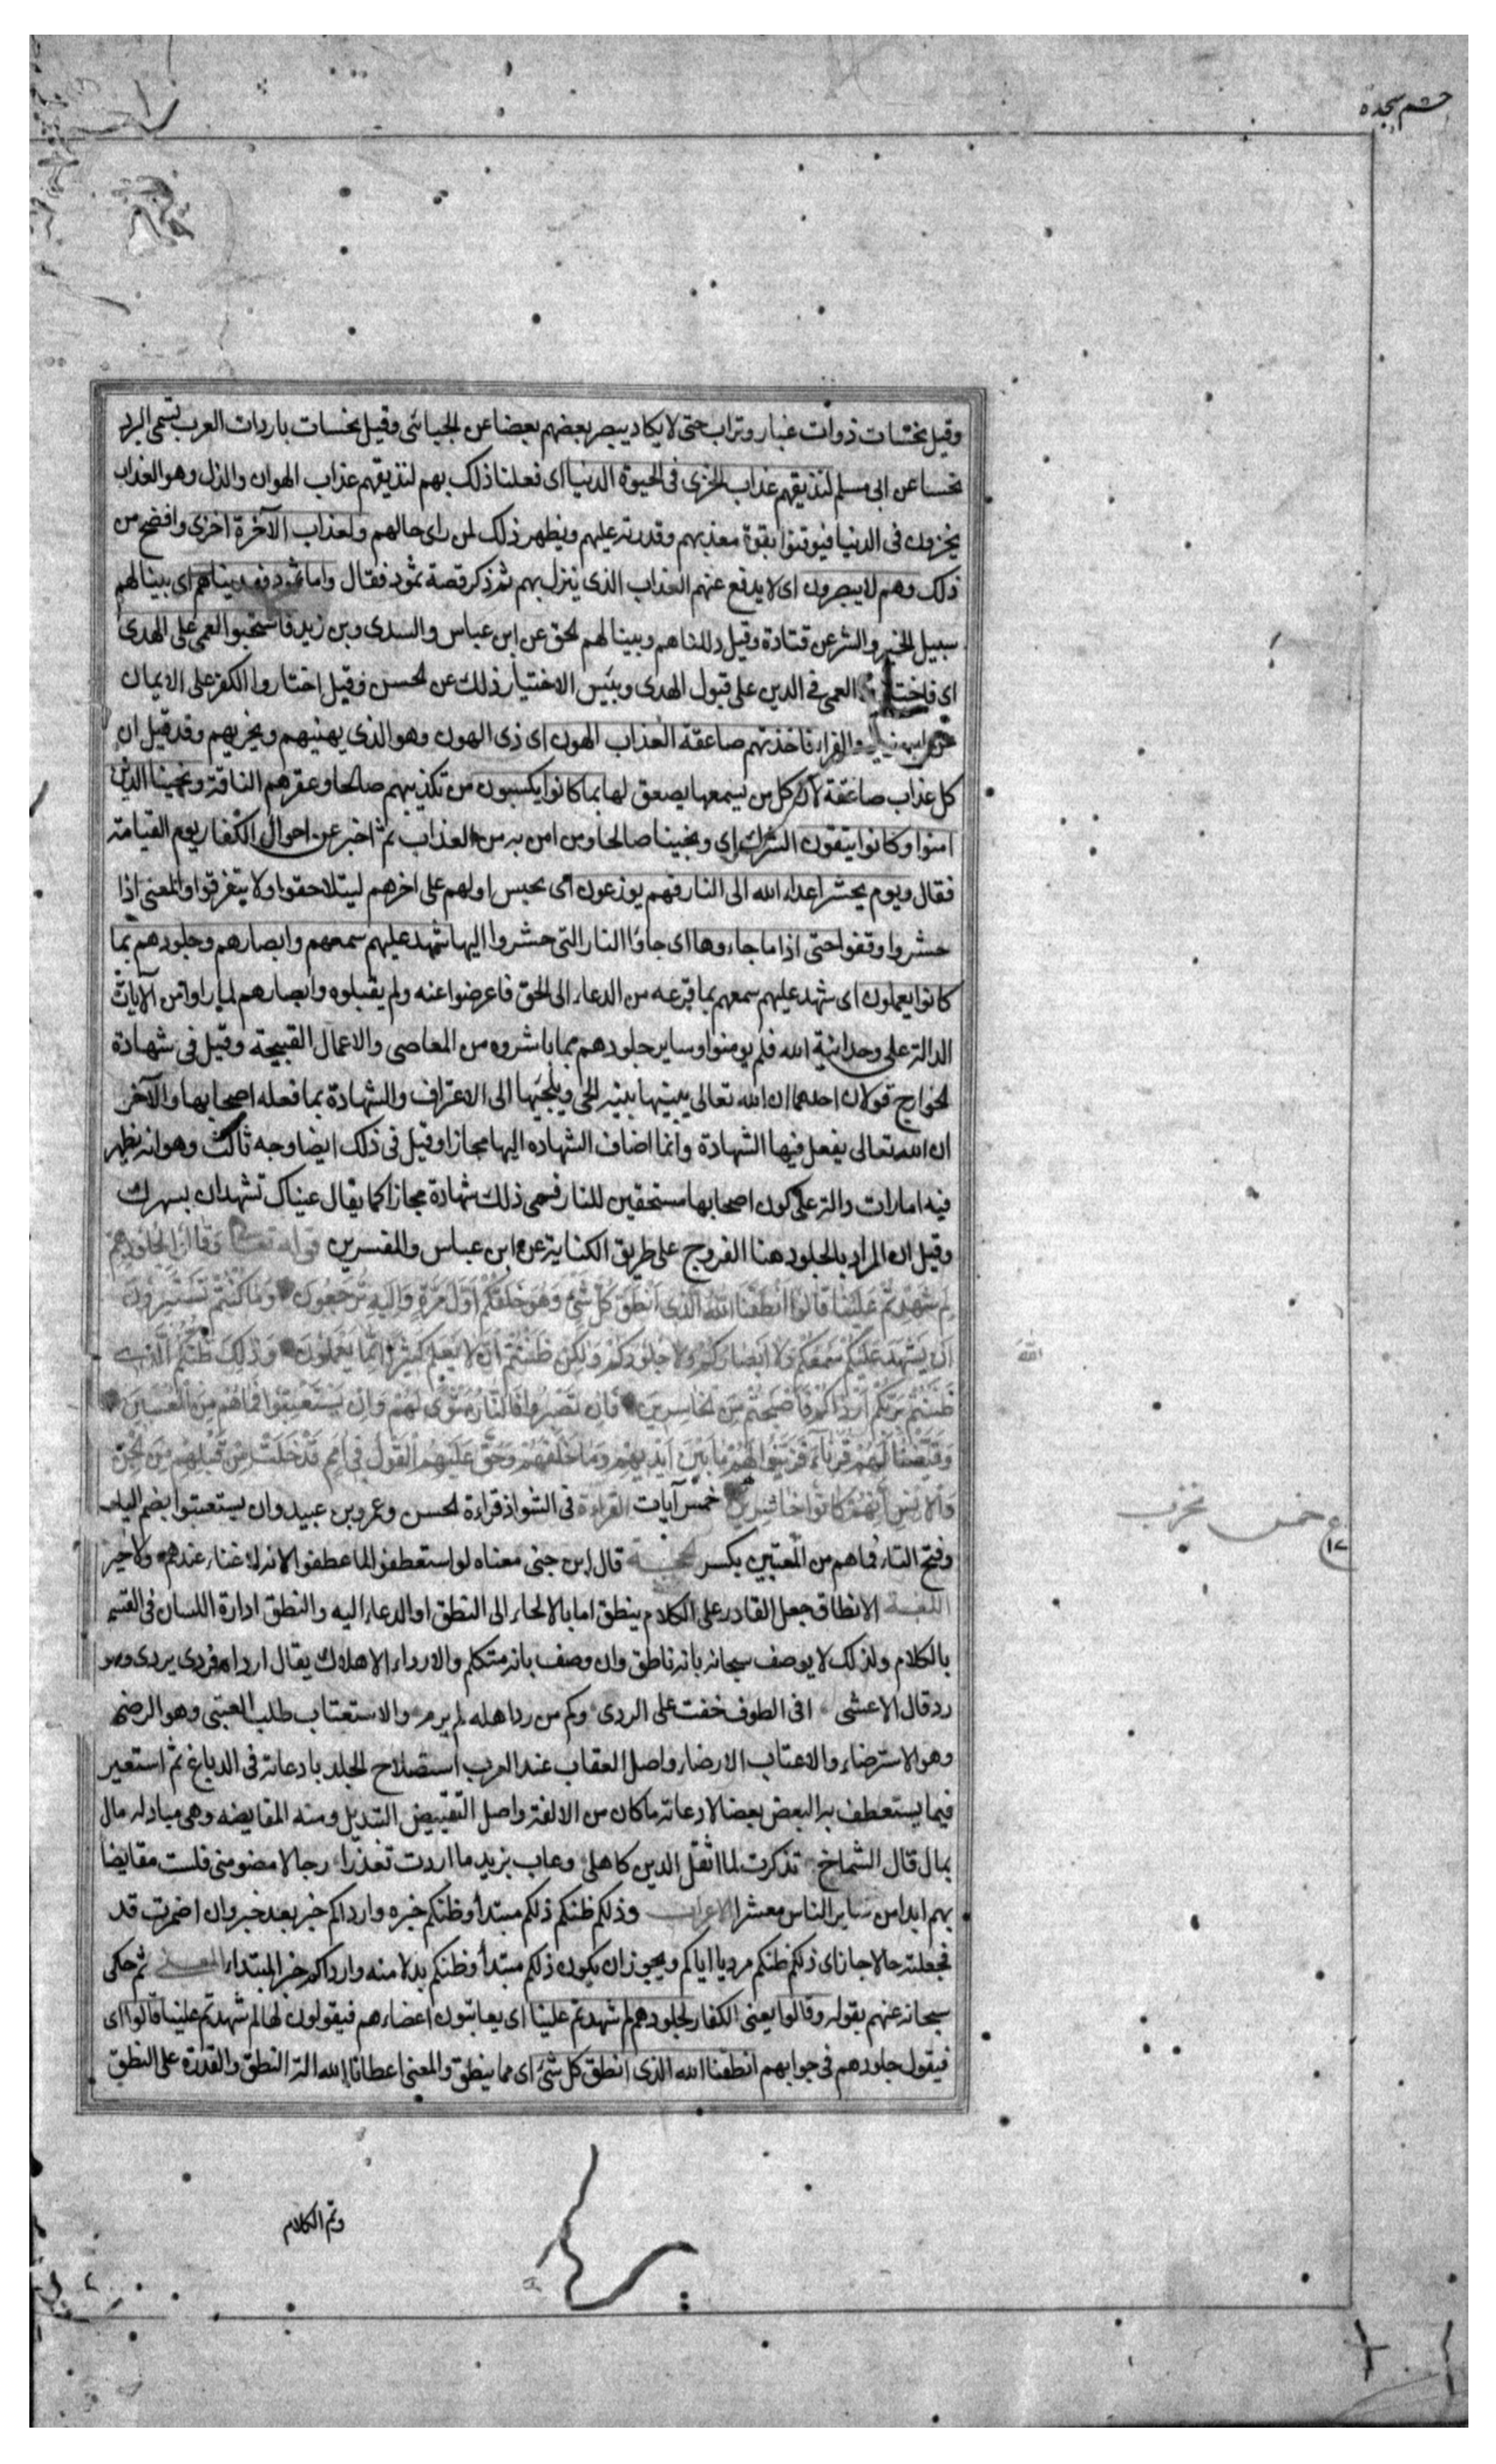 حم سجده
وقيل نحسات ذوات غبار وتراب حتى لا يكاد يبصر بعضهم بعضا عن الجبائى وقيل نحسات باردات العرب تسمى البرد
نحسا عن ابى مسلم لنذيقهم عذاب الخزى فى الحيوة الدنيا اى فعلنا ذلك بهم لنذيقهم عذاب الهوان والذل وهو العذاب
يخزون فى الدنيا فيوقنوا بقوة معذبهم وقدرته عليهم ويظهر ذلك لمن راى حالهم ولعذاب الآخرة اخزى وافضح من
ذلك وهم لا يبصرون اى لا يدفع عنهم العذاب الذى ينزل بهم ثم ذكر قصة ثمود فقال واما ثمود فهديناهم اى بينا لهم
سبيل الخير والشر عن قتادة وقيل دللناهم وبينا لهم الحق عن ابن عباس والسدى وبن زيد فاستحبوا العمى على الهدى
اى فاختا العمى فى الدين على قبول الهدى وبئس الاختيار ذلك عن الحسن وقيل اختاروا الكفر على الايمان
والفراء فاخذتهم صاعقة العذاب الهون اى ذى الهون وهو الذى يهينهم ويخزيهم وقد قيل ان
كل عذاب صاعقة لان كل من يسمعها يصعق لها بما كانوا يكسبون من تكذيبهم صالحا وعقرهم الناقة ونجينا الذين
امنوا وكانوا يتقون الشرك اى ونجينا صالحا ومن امن به من العذاب ثم اخبر عن احوال الكفار يوم القيامة
فقال ويوم يحشر اعداء الله الى النار فهم يوزعون اى يحبس اولهم على اخرهم ليتلاحقوا ولا يتفرقوا والمعنى اذا
حشروا وقفوا حتى اذا ما جاءوها اى جاؤا النار التى حشروا اليها شهد عليهم سمعهم وابصارهم وجلودهم بما
كانوا يعملون اى شهد عليهم سمعهم بما قرعه من الدعاء الى الحق فاعرضوا عنه ولم يقبلوه وابصارهم لما راوا من الآيات
الدالة على وحدانية الله فلم يومنوا وساير جلودهم بما باشروه من المعاصى والاعمال القبيحة وقيل فى شهادة
الجوارح قولان احدهما ان الله تعالى يبينها بنية الحى ويلجيها الى الاعتراف والشهادة بما فعله اصحابها والآخر
ان الله تعالى يفعل فيها الشهادة وانما اضاف الشهاده اليها مجازا وقيل فى ذلك ايضا وجه ثالث وهو انه يظهر
فيه امارات دالة على كون اصحابها مستحقين للنار فسمى ذلك شهادة مجازا كما يقال عيناك تشهدان بسهرك
وقيل ان المراد بالجلود هنا الفروج على طريق الكناية عن ابن عباس والمفسرين قوله تعالى وَقَالُوا لِجُلُودِهِمْ
لِمَ شَهِدْتُمْ عَلَيْنَا قَالُوا أَنْطَقَنَا اللهُ الَّذِى أَنْطَقَ كُلَّ شَىْءٍ وَهُوَ خَلَقَكُمْ أَوَّلَ مَرَّةٍ وَإِلَيْهِ تُرْجَعُونَ وَمَا كُنْتُمْ تَسْتَتِرُونَ
أَنْ يَشْهَدَ عَلَيْكُمْ سَمْعُكُمْ وَلَا أَبْصَارُكُمْ وَلَا جُلُودُكُمْ وَلَكِنْ ظَنَنْتُمْ أَنَّ لَا يَعْلَمُ كَثِيرًا مِمَّا يَعْمَلُونَ وَذَلِكَ ظَنُّكُمُ الَّذِى
الله
ظَنَنْتُمْ بِرَبِّكُمْ أَرْدَاكُمْ فَأَصْبَحْتُمْ مِنَ الْخَاسِرِينَ فَإِنْ يَصْبِرُوا فَالنَّارُ مَثْوًى لَهُمْ وَإِنْ يَسْتَعْتِبُوا فَمَا هُمْ مِنَ الْمُعْتَبِينَ
وَقَيَّضْنَا لَهُمْ قُرَنَاءَ فَزَيَّنُوا لَهُمْ مَا بَيْنَ أَيْدِيهِمْ وَمَا خَلْفَهُمْ وَحَقَّ عَلَيْهِمُ الْقَوْلُ فِى أُمَمٍ قَدْ خَلَتْ مِنْ قَبْلِهِمْ مِنَ الْجِنِّ
وَالْإِنْسِ إِنَّهُمْ كَانُوا خَاسِرِينَ خمس آيات القراءة فى الشواذ قراءة الحسن وعمرو بن عبيد وان يستعتبوا بضم الياء
ع خمس بحزب
١٢
وفتح التاء فما هم من المعتبين بكسر قال ابن جنى معناه لو استعطفوا لما عطفوا لانه لا غناء عندهم ولا خير
اللغة الانطاق جعل القادر على الكلام ينطق اما بالالجاء الى النطق او الدعاء اليه والنطق ادارة اللسان فى الفم
بالكلام ولذلك لا يوصف سبحانه بانه ناطق وان وصف بانه متكلم والارداء الاهلاك يقال ارداه فردى يردى وهو
رد قال الاعشى افى الطوف خفت على الردى وكم من ردا هله لم يرم والاستعتاب طلب العتبى وهو الرضى
وهو الاسترضاء والاعتاب الارضاء واصل العقاب عند العرب استصلاح الجلد بادعاته فى الدباغ ثم استعير
فيما يستعطف به البعض بعضا لادعاته ما كان من الالفة واصل التقييض التبديل ومنه المقايضه وهى مبادله مال
بمال قال الشماخ تذكرت لما اثقل الدين كاهلى وعاب يزيد ما اردت تعذرا رجالا مضوا منى فلست مقايضا
بهم ابدا من ساير الناس معشرا الاعراب وذلكم ظنكم ذلكم مبتدأ وظنكم خبره وارداكم خبر بعد خبر وان اضمرت قد
فجعلته حالا جاز اى ذلكم ظنكم مرديا اياكم ويجوز ان يكون ذلكم مبتدأ وظنكم بدلا منه وارداكم خبر المبتداء المعنى ثم حكى
سبحانه عنهم بقوله وقالوا يعنى الكفار لجلودهم لم شهدتم علينا اى يعاتبون اعضاءهم فيقولون لها لم شهدتم علينا قالوا اى
فيقول جلودهم فى جوابهم انطقنا الله الذى انطق كل شئ اى مما ينطق والمعنى اعطانا الله الة النطق والقدرة على النطق
وتم الكلام